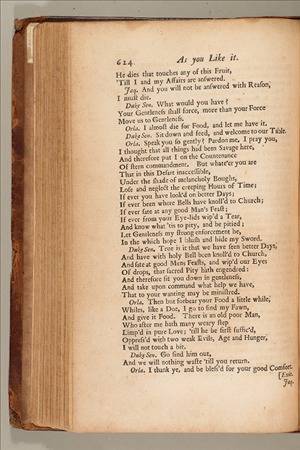 624 As you Like it.
He dies that touches any of this Fruit,
'Till I and my Affairs are answered.
Jaq. And you will not be answered with Reason,
I must die.
Duke Sen. What would you have?
Your Gentleness shall force, more than your Force
Move us to Gentleness.
Orla. I almost die for Food, and let me have it.
Duke Sen. Sit down and feed, and welcome to our Table.
Orla. Speak you so gently? Pardon me, I pray you,
I thought that all things had been Savage here,
And therefore put I on the Countenance
Of stern commandment. But whate'er you are
That in this Desart inaccessible,
Under the shade of melancholy Boughs,
Lose and neglect the creeping Hours of Time;
If ever you have look'd on better Days;
If ever been where Bells have knoll'd to Church;
If ever sate at any good Man's Feast;
If ever from your Eye-lids wip'd a Tear,
And know what 'tis to pity, and be pitied;
Let Gentleness my strong enforcement be,
In the which hope I blush and hide my Sword.
Duke Sen. True is it that we have seen better Days,
And have with holy Bell been knoll'd to Church,
And sate at good Mens Feasts, and wip'd our Eyes
Of drops, that sacred Pity hath engendred:
And therefore sit you down in gentleness,
And take upon command what help we have,
That to your wanting may be ministred.
Orla. Then but forbear your Food a little while,
Whiles, like a Doe, I go to find my Fawn,
And give it Food. There is an old poor Man,
Who after me hath many weary step
Limp'd in pure Love; 'till he be first suffic'd,
Oppress'd with two weak Evils, Age and Hunger,
I will not touch a bit.
Duke Sen. Go find him out,
And we will nothing waste 'till you return.
Orla. I thank ye, and be bless'd for your good Comfort.
[Exit.
Jaq.